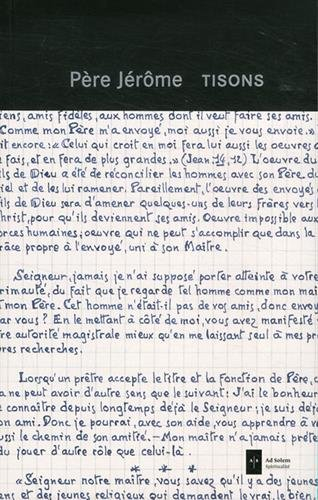 Père Jérôme TISONS
iens, amis fidèles, aux hommes dont il veut faire ses amis.
Comme mon Père m'a envoyé, moi aussi je vous envoie."
it encore: « Celui qui croit en moi fera lui aussi les oeuvres
fais, et en fera de plus grandes.» (Jean 14,12) L'oeuvre du
ils de Dieu a été de réconcilier les hommes avec son Père du
iel et de les lui ramener. Pareillement, l'oeuvre des envoyés
ils de Dieu sera d'amener quelques-uns de leurs Frères vers
hrist, pour qu'ils deviennent ses amis. Oeuvre impossible aux
orces humaines; oeuvre qui ne peut s'accomplir que dans la
râce propre à l'envoyé, uni à son Maître.
Seigneur, jamais je n'ai supposé porter atteinte à votre
rimauté, du fait que je regarde tel homme comme mon maî
t mon Père. Cet homme n'était-il pas de vos amis, donc envoy
ar vous? En le mettant à côté de moi, vous avez manifesté
tre autorité magistrale mieux qu'en me laissant seul à mes pr
ures recherches.
Lorsqu'un prêtre accepte le titre et la fonction de Père,
a ne peut avoir d'autre sens que le suivant: J'ai le bonheur
e connaître depuis longtemps déjà le Seigneur; je suis déjà
on ami. Donc je pourrai, avec son aide, vous apprendre à v
ussi le chemin de son amitié.- Mon maître n'a jamais préte
du jouer d'autre rôle que celui-là.
* * *
« Seigneur notre maître, vous savez qu'il y a des jeunes
ens et des jeunes religieux qui demandent le vrai, le bien
Ad Solem